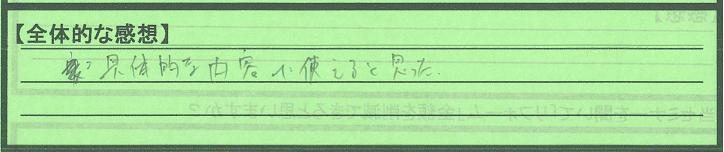 【全体的な感想】
具体的な内容に使えると思った.